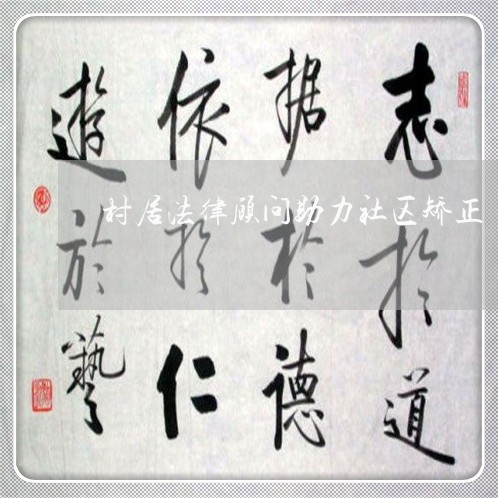 志於道
据於德
依於仁
遊於藝
村居法律顾问助力社区矫正